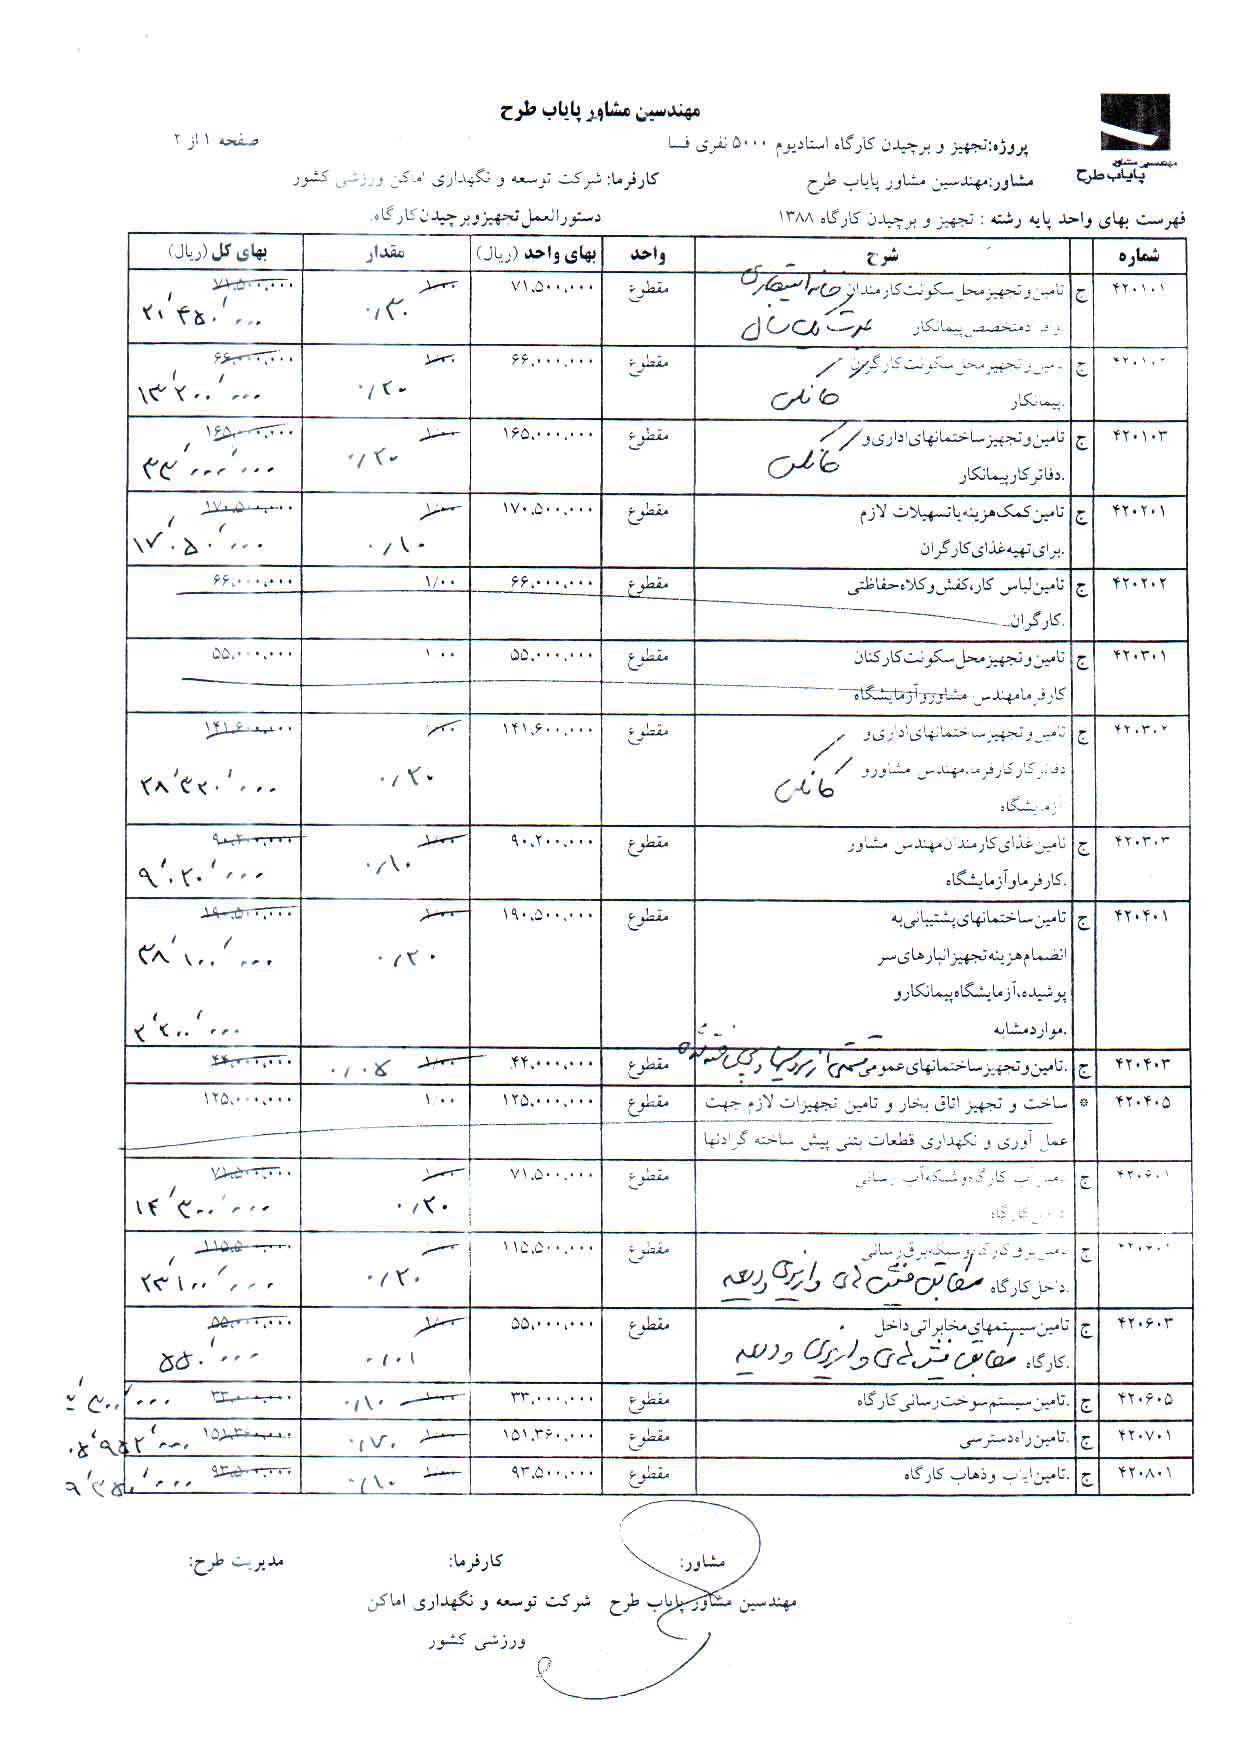 مهندسین مشاور پایاب طرح
مهندسین مشاور
پایاب طرح
پروژه: تجهیز و برچیدن کارگاه استادیوم ۵۰۰۰ نفری فسا
صفحه ۱ از ۲
مشاور: مهندسین مشاور پایاب طرح
کارفرما: شرکت توسعه و نگهداری اماکن ورزشی کشور
فهرست بهای واحد پایه رشته : تجهیز و برچیدن کارگاه ۱۳۸۸
دستورالعمل تجهیز و برچیدن کارگاه.
شماره شرح واحد بهای واحد (ریال) مقدار بهای کل (ریال)
۴۲۰۱۰۱ ج تامین و تجهیز محل سکونت کارمندان مقطوع ۷۱،۵۰۰،۰۰۰ ۱/۰۰ ۷۱،۵۰۰،۰۰۰
متخصص پیمانکار ۰/۳۰ ۲۱٬۴۵۰٬۰۰۰
۴۲۰۱۰۲ ج تامین و تجهیز محل سکونت کارگران مقطوع ۶۶،۰۰۰،۰۰۰ ۱/۰۰ ۶۶،۰۰۰،۰۰۰
پیمانکار. کانکس ۰/۲۰ ۱۳٬۲۰۰٬۰۰۰
۴۲۰۱۰۳ ج تامین و تجهیز ساختمانهای اداری و مقطوع ۱۶۵،۰۰۰،۰۰۰ ۱/۰۰ ۱۶۵،۰۰۰،۰۰۰
دفاتر کار پیمانکار. کانکس ۰/۲۰ ۳۳٬۰۰۰٬۰۰۰
۴۲۰۲۰۱ ج تامین کمک هزینه یا تسهیلات لازم مقطوع ۱۷۰،۵۰۰،۰۰۰ ۱/۰۰ ۱۷۰،۵۰۰،۰۰۰
برای تهیه غذای کارگران. ۰/۱۰ ۱۷٬۰۵۰٬۰۰۰
۴۲۰۲۰۲ ج تامین لباس کار، کفش و کلاه حفاظتی مقطوع ۶۶،۰۰۰،۰۰۰ ۱/۰۰ ۶۶،۰۰۰،۰۰۰
کارگران.
۴۲۰۳۰۱ ج تامین و تجهیز محل سکونت کارکنان مقطوع ۵۵،۰۰۰،۰۰۰ ۱/۰۰ ۵۵،۰۰۰،۰۰۰
کارفرما، مهندس مشاور و آزمایشگاه
۴۲۰۳۰۲ ج تامین و تجهیز ساختمانهای اداری و مقطوع ۱۴۱،۶۰۰،۰۰۰ ۱/۰۰ ۱۴۱،۶۰۰،۰۰۰
دفاتر کار کارفرما، مهندس مشاور و کانکس ۰/۲۰ ۲۸٬۳۲۰٬۰۰۰
آزمایشگاه
۴۲۰۳۰۳ ج تامین غذای کارمندان مهندس مشاور مقطوع ۹۰،۲۰۰،۰۰۰ ۱/۰۰ ۹۰،۲۰۰،۰۰۰
کارفرما و آزمایشگاه. ۰/۱۰ ۹٬۰۲۰٬۰۰۰
۴۲۰۴۰۱ ج تامین ساختمانهای پشتیبانی به مقطوع ۱۹۰،۵۰۰،۰۰۰ ۱/۰۰ ۱۹۰،۵۰۰،۰۰۰
انضمام هزینه تجهیز انبارهای سر ۰/۲۰ ۳۸٬۱۰۰٬۰۰۰
پوشیده، آزمایشگاه پیمانکار و
موارد مشابه. ۲٬۲۰۰٬۰۰۰
۴۲۰۴۰۳ ج تامین و تجهیز ساختمانهای عمومی مقطوع ۴۴،۰۰۰،۰۰۰ ۱/۰۰ ۰/۰۵ ۴۴،۰۰۰،۰۰۰
۴۲۰۴۰۵ * ساخت و تجهیز اتاق بخار و تامین تجهیزات لازم جهت مقطوع ۱۲۵،۰۰۰،۰۰۰ ۱/۰۰ ۱۲۵،۰۰۰،۰۰۰
عمل آوری و نگهداری قطعات بتنی پیش ساخته گرادنها
۴۲۰۶۰۱ ج تامین آب کارگاه و شبکه آب رسانی مقطوع ۷۱،۵۰۰،۰۰۰ ۱/۰۰ ۷۱،۵۰۰،۰۰۰
داخل کارگاه ۰/۲۰ ۱۴٬۳۰۰٬۰۰۰
ج تامین برق کارگاه و شبکه برق رسانی مقطوع ۱۱۵،۵۰۰،۰۰۰ ۱/۰۰ ۱۱۵،۵۰۰،۰۰۰
داخل کارگاه. مطابق فیش های واریزی ودیعه ۰/۲۰ ۲۳٬۱۰۰٬۰۰۰
۴۲۰۶۰۳ ج تامین سیستمهای مخابراتی داخل مقطوع ۵۵،۰۰۰،۰۰۰ ۱/۰۰ ۵۵،۰۰۰،۰۰۰
کارگاه. مطابق فیش های واریزی ودیعه ۰/۰۱ ۵۵۰٬۰۰۰
۴۲۰۶۰۵ ج تامین سیستم سوخت رسانی کارگاه. مقطوع ۳۳،۰۰۰،۰۰۰ ۱/۰۰ ۰/۱۰ ۳۳،۰۰۰،۰۰۰ ۳٬۳۰۰٬۰۰۰
۴۲۰۷۰۱ ج تامین راه دسترسی. مقطوع ۱۵۱،۳۶۰،۰۰۰ ۱/۰۰ ۰/۷۰ ۱۵۱،۳۶۰،۰۰۰ ۱۰۵٬۹۵۲٬۰۰۰
۴۲۰۸۰۱ ج تامین ایاب و ذهاب کارگاه. مقطوع ۹۳،۵۰۰،۰۰۰ ۱/۰۰ ۰/۱۰ ۹۳،۵۰۰،۰۰۰ ۹٬۳۵۰٬۰۰۰
مشاور: کارفرما: مدیریت طرح:
مهندسین مشاور پایاب طرح شرکت توسعه و نگهداری اماکن
ورزشی کشور